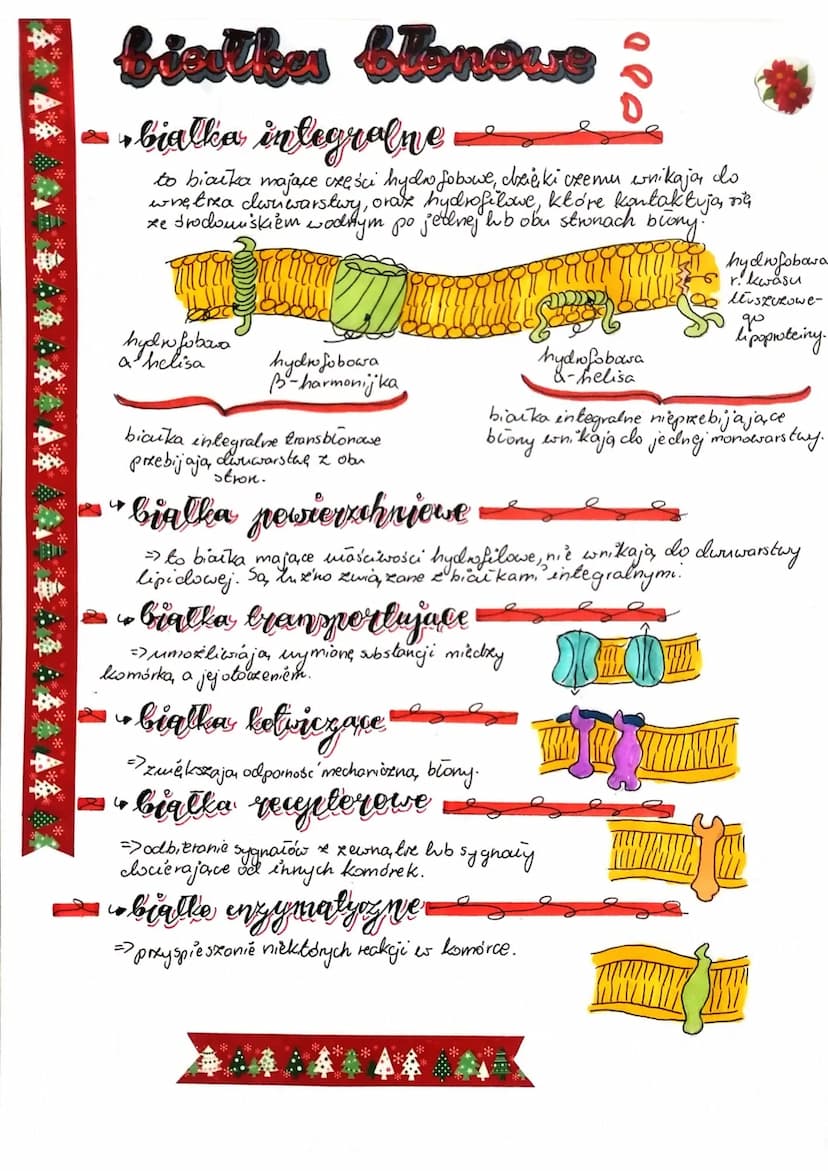 białka błonowe
białka integralne
to białka mające części hydrofobowe, dzięki czemu wnikają do
wnętrza dwuwarstwy, oraz hydrofilowe, które kontaktują się
ze środowiskiem wodnym po jednej lub obu stronach błony.
hydrofobowa
α-helisa
hydrofobowa
β-harmonijka
hydrofobowa
α-helisa
hydrofobowa
r. kwasu
tłuszczowe-
go
lipoproteiny.
białka integralne transbłonowe
przebijają dwuwarstwę z obu
stron.
białka integralne nieprzebijające
błony wnikają do jednej monowarstwy.
białka powierzchniowe
⇒ to białka mające właściwości hydrofilowe, nie wnikają do dwuwarstwy
lipidowej. Są luźno związane z białkami integralnymi.
białka transportujące
⇒ umożliwiają wymianę substancji między
komórką a jej otoczeniem.
białka kotwiczące
⇒ zwiększają odporność mechaniczną błony.
białka receptorowe
⇒ odbieranie sygnałów z zewnątrz lub sygnały
docierające od innych komórek.
białko enzymatyczne
⇒ przyspieszanie niektórych reakcji w komórce.